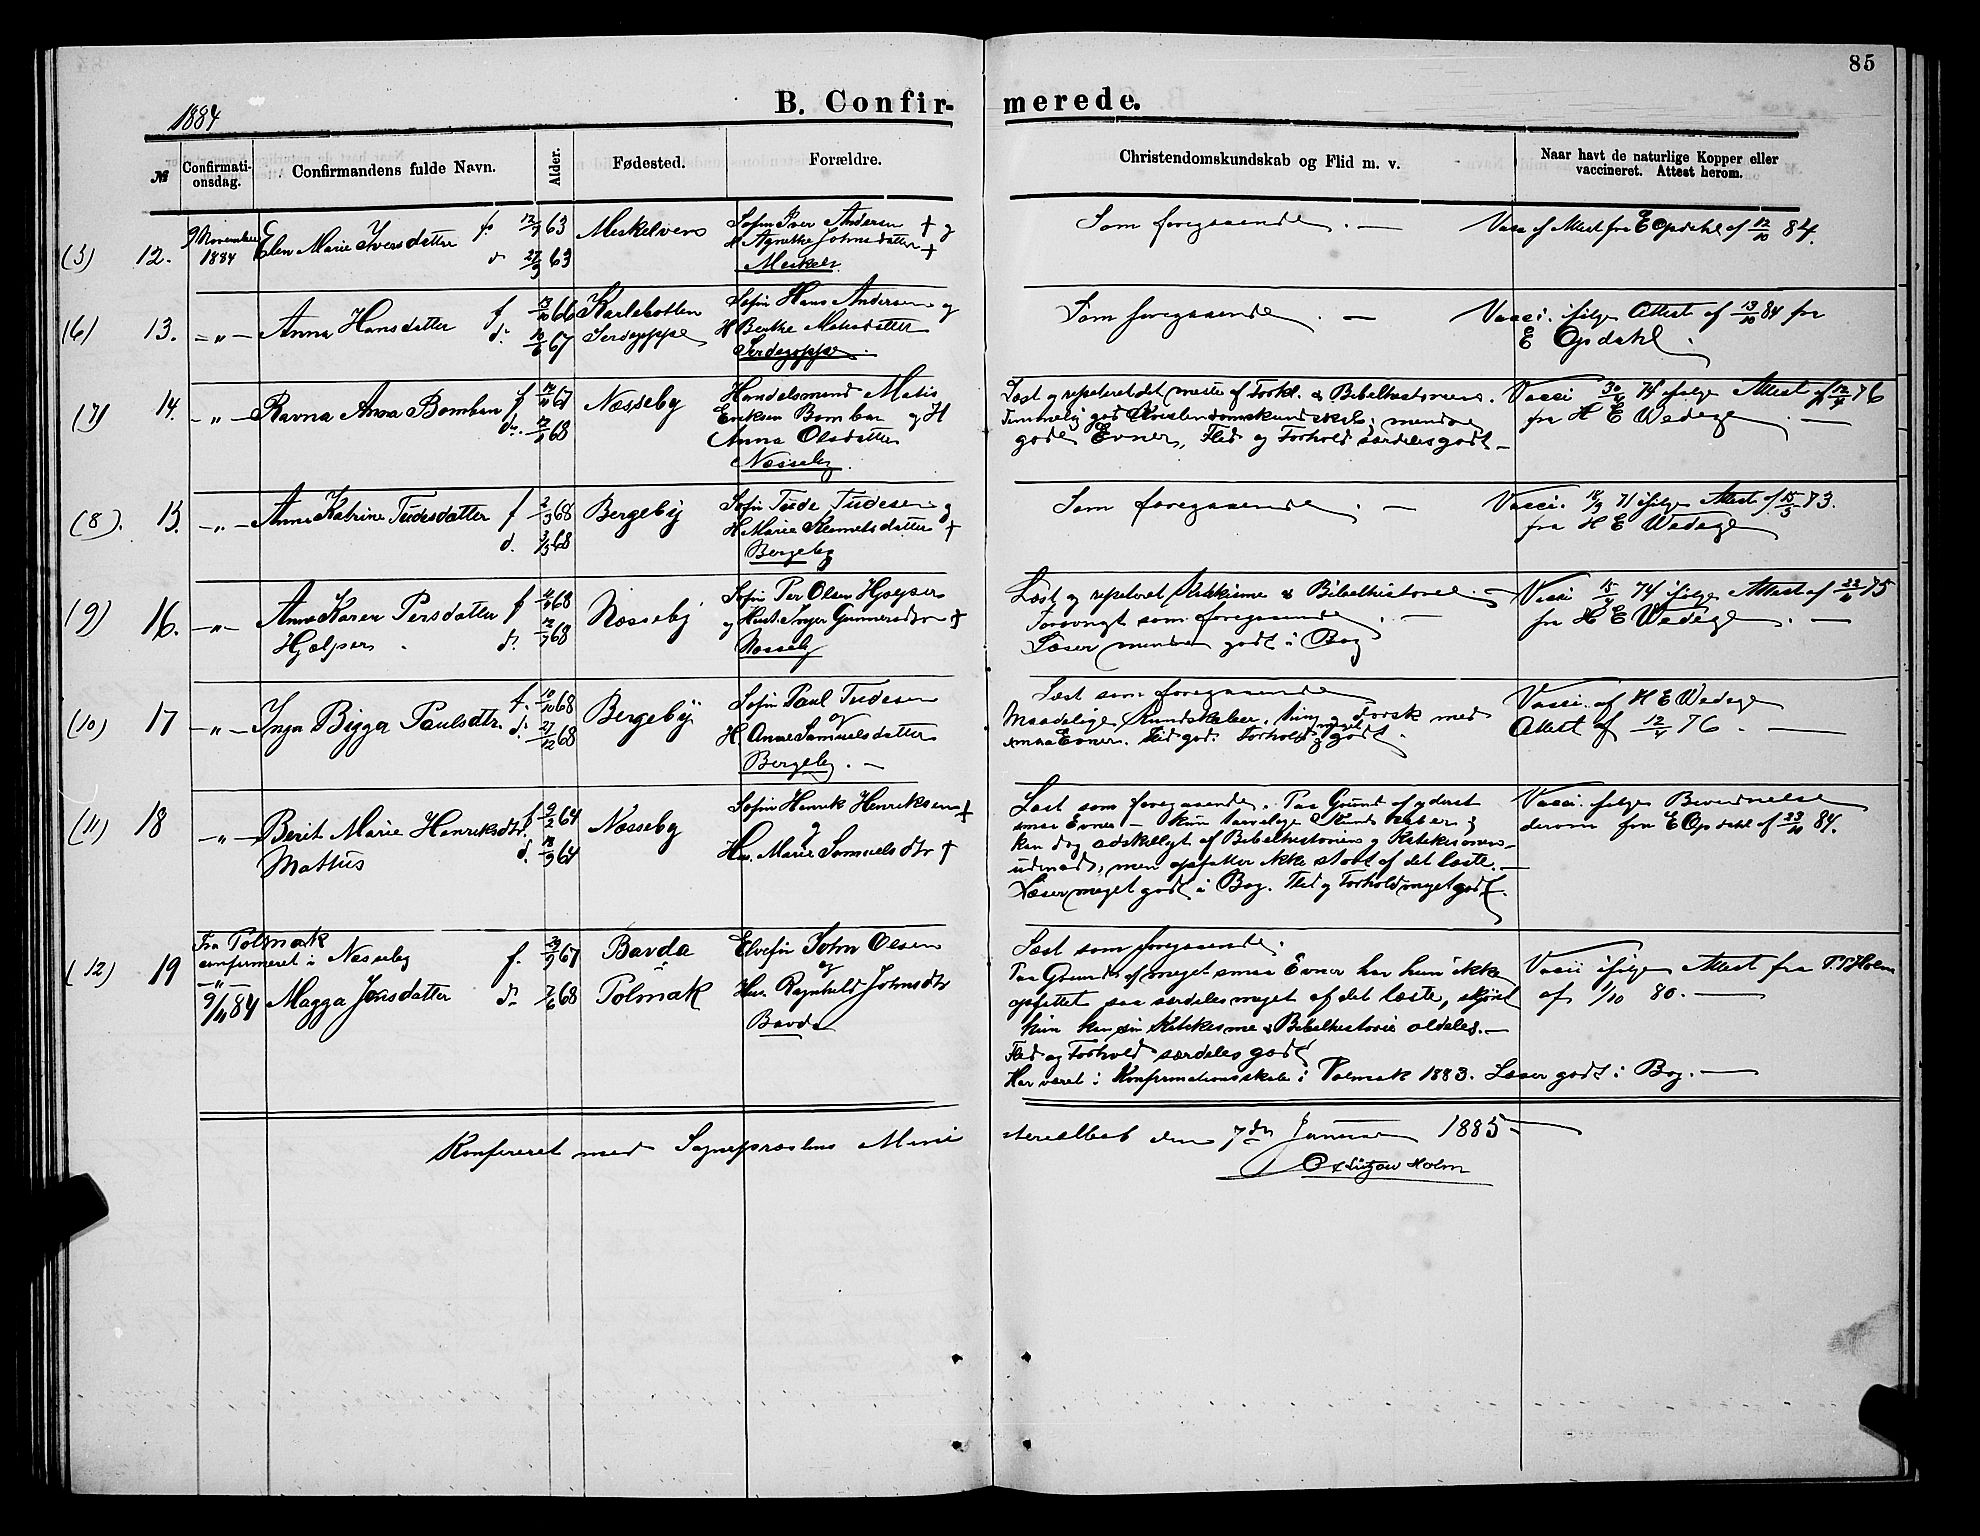 85
1884
B. Confirmerede.
№ Confirmationsdag. Confirmandens fulde Navn. Alder. Fødested. Forældre. Christendomskundskab og Flid m. v. Naar havt de naturlige Kopper eller vaccineret. Attest herom.
12. 9 November 1884 Elen Marie Iversdatter f. 63 d. 63 Meskelvens Sofin Iver Andersen † og
H Agnethe Johnsdatter †
Som foregaaende. — Vacc. Attest fra E Opdahl af 12/10 84.
(6) 13. =„— Anna Hansdatter f 66 d. 67 Karlebotten Sofin Hans Andersen og
H Berthe Matisdatter
Som foregaaende. — Vacci. ifølge Attest af 13/10 84 fra
E Opdahl.
(7) 14. —„— Ravna Anna Bomban f 67 d. 68 Næsseby Handelsmand Matis
Eriksen Bomban og H
Anna Olsdatter
Næsseby.
Læst og repeteret det meste af Forkl. & Bibelhistorien.
gode Evner, Flid og Forhold særdeles godt —
Vacci 74 ifølge Attest af 12/4 76
fra H E Wedege. —
(8). 15. —„— Anne Katrine Tudesdatter f 68 d. 68 Bergeby Sofin Tude Tudesen og
H Marie Samuelsdatter †
Bergeby
Som foregaaende. — Vacci. 71 ifølge Attest af 73.
fra H E Wedege
(9) 16. —„— Anne Karen Persdatter f 68 d. 68
Hjælper. Næsseby Sofin Per Olsen Hjælper
og Hust. Inger Gunnersdtr †
Næsseby
Læst og repeteret Katekisme & Bibelhistorie. —
Forøvrigt som foregaaende. —
Læser mindre godt i Bog
Vacci 15/4 74 ifølge Attest af 75
fra H E Wedege. —
(10) 17 —„— Inga Bigga Paulsdtr. f. 10/10 68 d. 27/12 68 Bergeby Sofin Paul Tudesen
og
H. Anne Samuelsdatter
Bergeby. —
Læst som foregaaende
Maadelige Kundskaber. Ring og Norsk med
smaa Evner. Flid god. Forhold meget godt.
Vacci. af H E Wedege
Attest af 12/4 76. —
(11) 18 —„— Berit Marie Henriksdtr. f 9/2 64 d. 64
Mattus Næsseby Sofin Henrik Henriksen †
og
Hu. Marie Samuelsdtr †
Læst som foregaaende. Paa Grund af yderst
smaa Evner — kun daarlige Kundskaber;
kan dog adskilligt af Bibelhistorien og Katekismen
udenad, men opfatter ikke stort af det læste. —
Læser meget godt i Bog. Flid og Forhold meget godt.
Vacci. ifølge Bevidnelse
derom fra E Opdahl af 84.
(12) 19 Fra Polmak
confirmeret i Næsseby
—„—
9/11 84 Magga Jonsdatter f. 67 d. 68 Bavda
Polmak Elvefin John Olsen
og
Hu. Ragnhild Johnsdtr
Bavda
Læst som foregaaende.
Paa Grund af meget smaa Evner har hun ikke
opfattet saa særdeles meget af det læste, skjønt
hun kan sin Katekisme & Bibelhistorie aldeles. —
Flid og Forhold særdeles godt
Har været i Konfirmationsskole i Polmak 1883. Læser godt i Bog. —
Vacci ifølge Attest fra Holm
af 1/10 80. —
Konfereret med Sognepræstens Ministerialbok den 7de Januar 1885 —
Lützow Holm